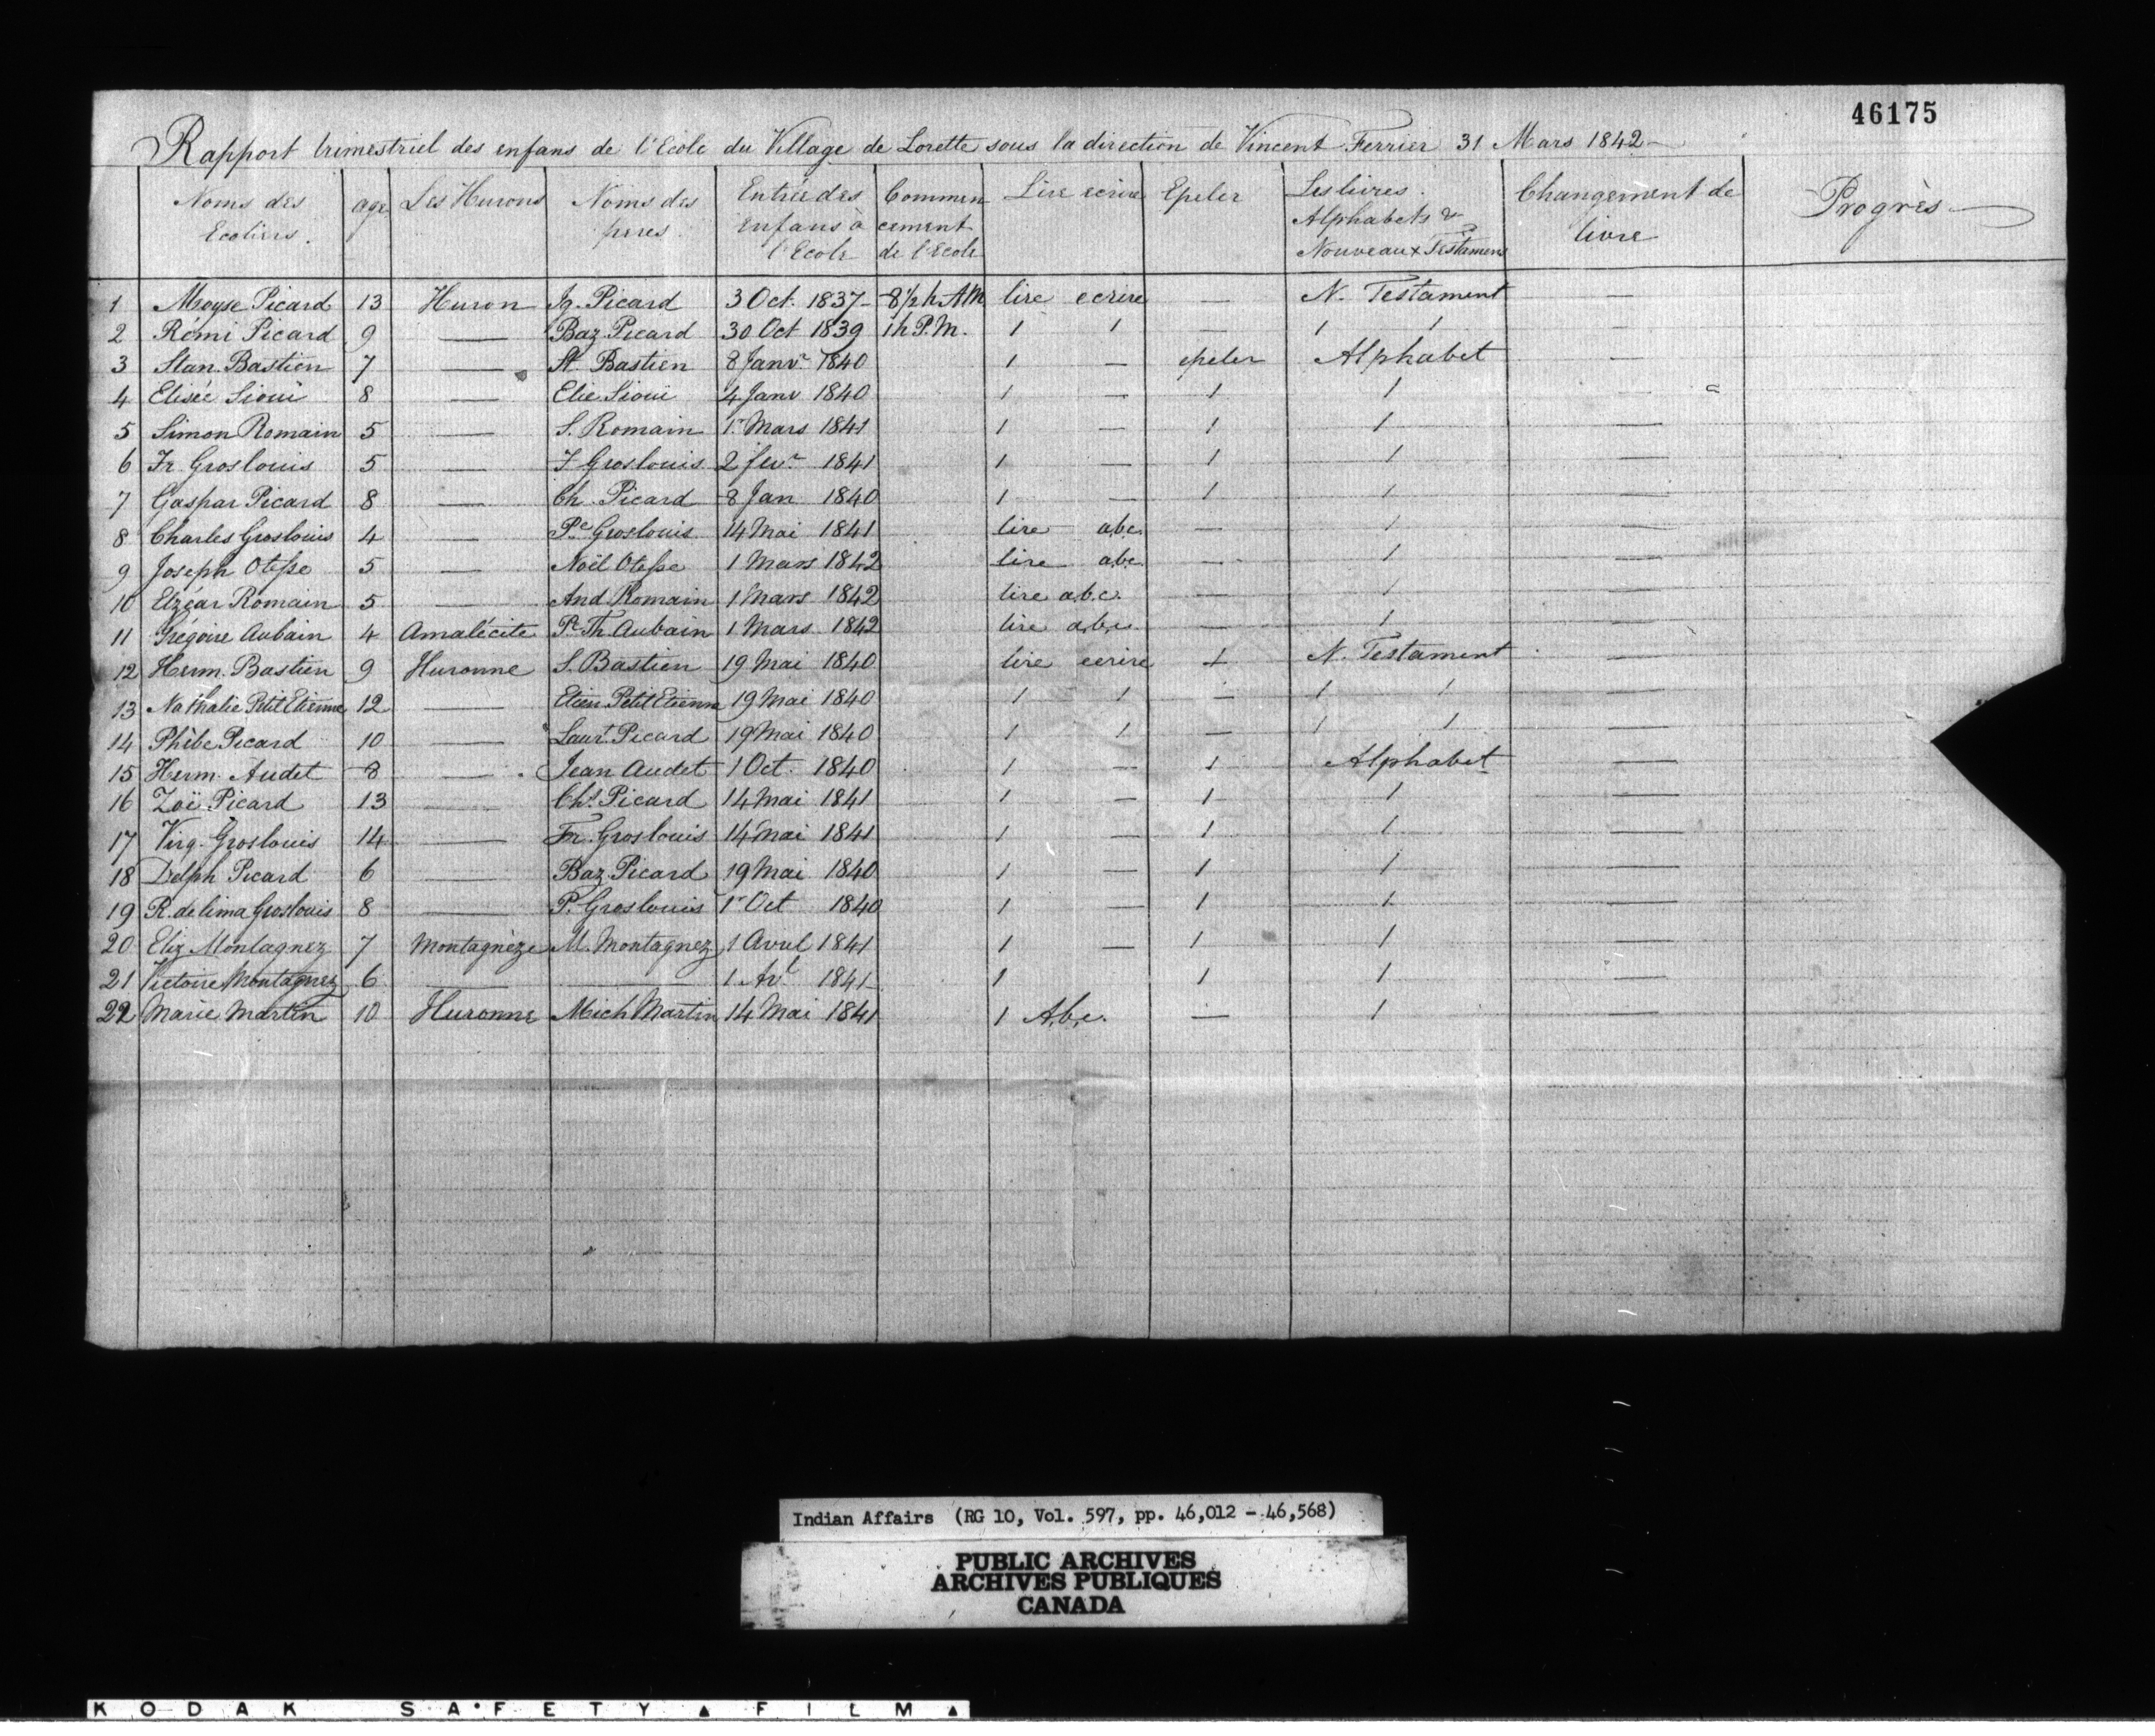 46175
Rapport trimestriel des enfans de l'Ecole du Village de Lorette sous la direction de Vincent Ferrier 31 Mars 1842 —
Noms des Ecoliers. | age | Les Hurons | Noms des peres | Entrée des enfans à l'Ecole | Commencement de l'Ecole | Lire ecrire | Epeler | Les livres. Alphabets & Nouveaux Testamens | Changement de livre | Progrès
1 Moyse Picard 13 Huron Ig. Picard 3 Oct. 1837 — 8 1/2 h. AM lire ecrire — N. Testament —
2 Rémi Picard 9 — Baz Picard 30 Oct 1839 1 h P.M. 1 1 — 1 1 —
3 Stan. Bastien 7 — St. Bastien 8 Janvr 1840 1 — epeler Alphabet —
4 Elisée Sioui 8 — Elie Sioui 4 Janv 1840 1 — 1 1 —
5 Simon Romain 5 — S. Romain 1r Mars 1841 1 — 1 1 —
6 Fr. Groslouis 5 — F Groslouis 2 fevr 1841 1 — 1 1 —
7 Gaspar Picard 8 — Ch. Picard 8 Jan 1840 1 — 1 1 —
8 Charles Groslouis 4 — Pe Groslouis 14 Mai 1841 lire abc. — 1 —
9 Joseph Otesse 5 — Noël Otesse 1 Mars 1842 lire abc. — 1 —
10 Elzéar Romain 5 — And Romain 1 Mars 1842 lire a.b.c. — 1 —
11 Grégoire Aubain 4 Amalécite Pe Th. Aubain 1 Mars 1842 lire a,b,c. — 1 —
12 Herm. Bastien 9 Huronne S. Bastien 19 Mai 1840 lire ecrire + N. Testament —
13 Nathalie Petit Etienne 12 — Etien Petit Etienne 19 Mai 1840 1 1 — 1 1 —
14 Phèbe Picard 10 — Laurt. Picard 19 Mai 1840 1 1 — 1 1 —
15 Herm. Audet 8 — Jean Audet 1 Oct. 1840 1 — 1 Alphabet —
16 Zoë Picard 13 — Chs Picard 14 Mai 1841 1 — 1 1 —
17 Virg. Groslouis 14 — Fr. Groslouis 14 Mai 1841 1 — 1 1 —
18 Delph Picard 6 — Baz. Picard 19 Mai 1840 1 — 1 1 —
19 R. de lima Groslouis 8 — P. Groslouis 1r Oct 1840 1 — 1 1 —
20 Eliz Montagnez 7 Montagnèze M. Montagnez 1 Avril 1841 1 — 1 1 —
21 Victoire Montagnez 6 — — 1 Avl 1841 1 1 1 —
22 Marie Martin 10 Huronne Mich Martin 14 Mai 1841 1 A,b,c. — 1 —
Indian Affairs (RG 10, Vol. 597, pp. 46,012 - 46,568)
PUBLIC ARCHIVES
ARCHIVES PUBLIQUES
CANADA
KODAK SAFETY ▲ FILM ▲